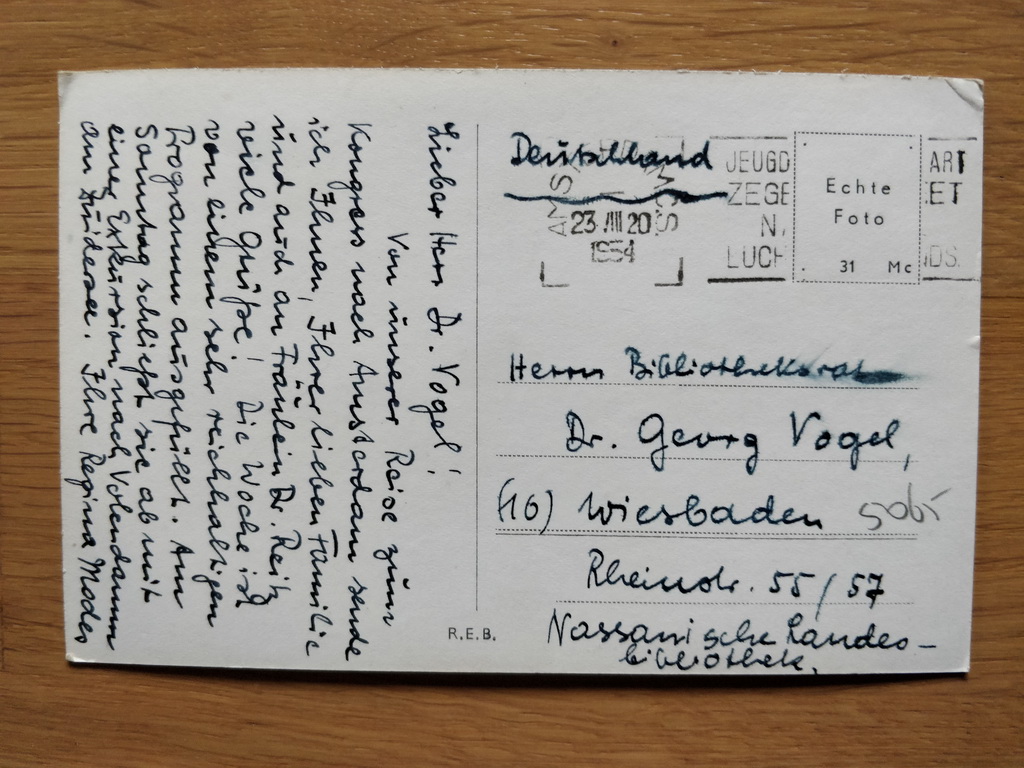 Lieber Herr Dr. Vogel!
Von unserer Reise zum
Kongress nach Amsterdam sende
ich Ihnen, Ihrer lieben Familie
und auch an Fräulein Dr. Reitz
viele Grüße! Die Woche ist
von einem sehr reichhaltigen
Programm ausgefüllt. Am
Samstag schließt sie ab mit
einer Exkursion nach Volendamm
am Zuidersee. Ihre Regina Modes
R.E.B.
Deutschland
AMS
23 VIII 20
1954
JEUGD
ZEGE
N.
LUCH
Echte
Foto
31 Mc
ART
ET
DS.
Herrn Bibliotheksrat
Dr. Georg Vogel,
(16) Wiesbaden
Rheinstr. 55/57
Nassauische Landes-
bibliothek.